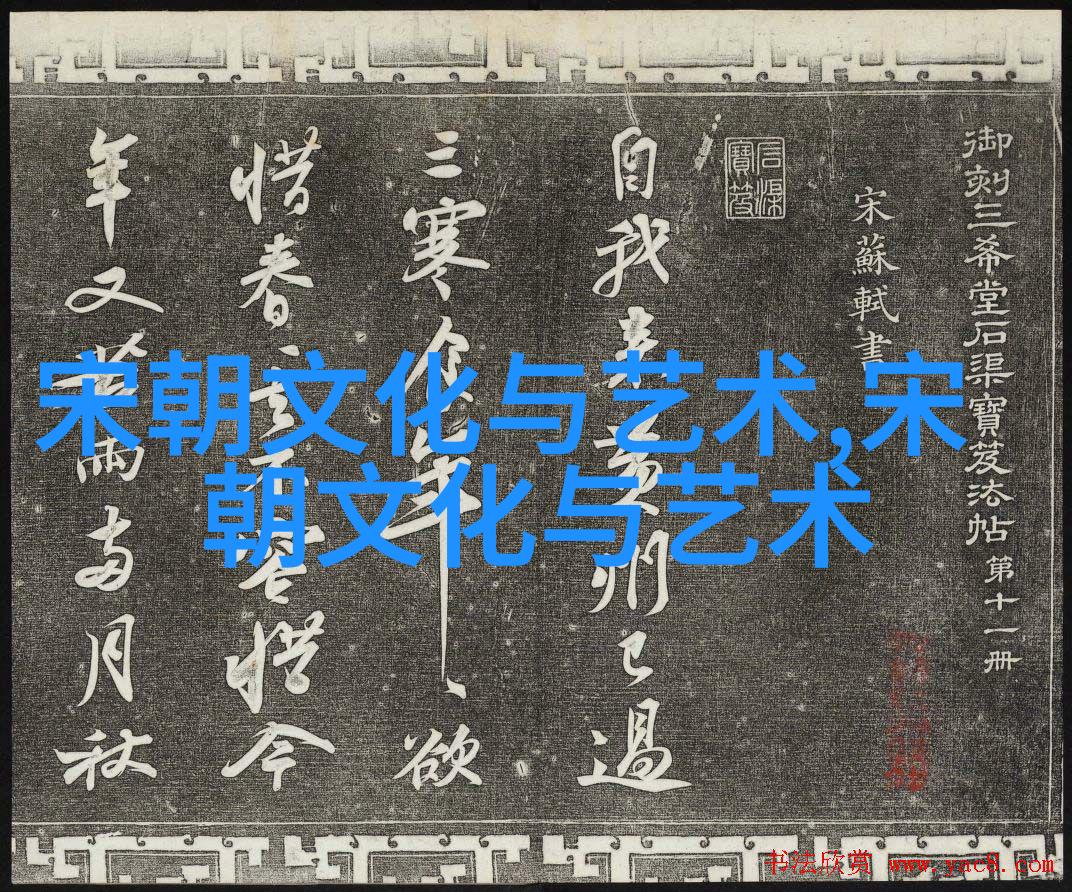 御刻三希堂石渠寶笈法帖 第十一冊
宋蘇軾書
石渠寶笈
自我来黄州已過
三寒食年、欲
惜春、去不容惜今
年又苦雨兩月秋
宋朝文化与艺术,宋
朝文化与艺术
书法欣赏 www.yac8.com